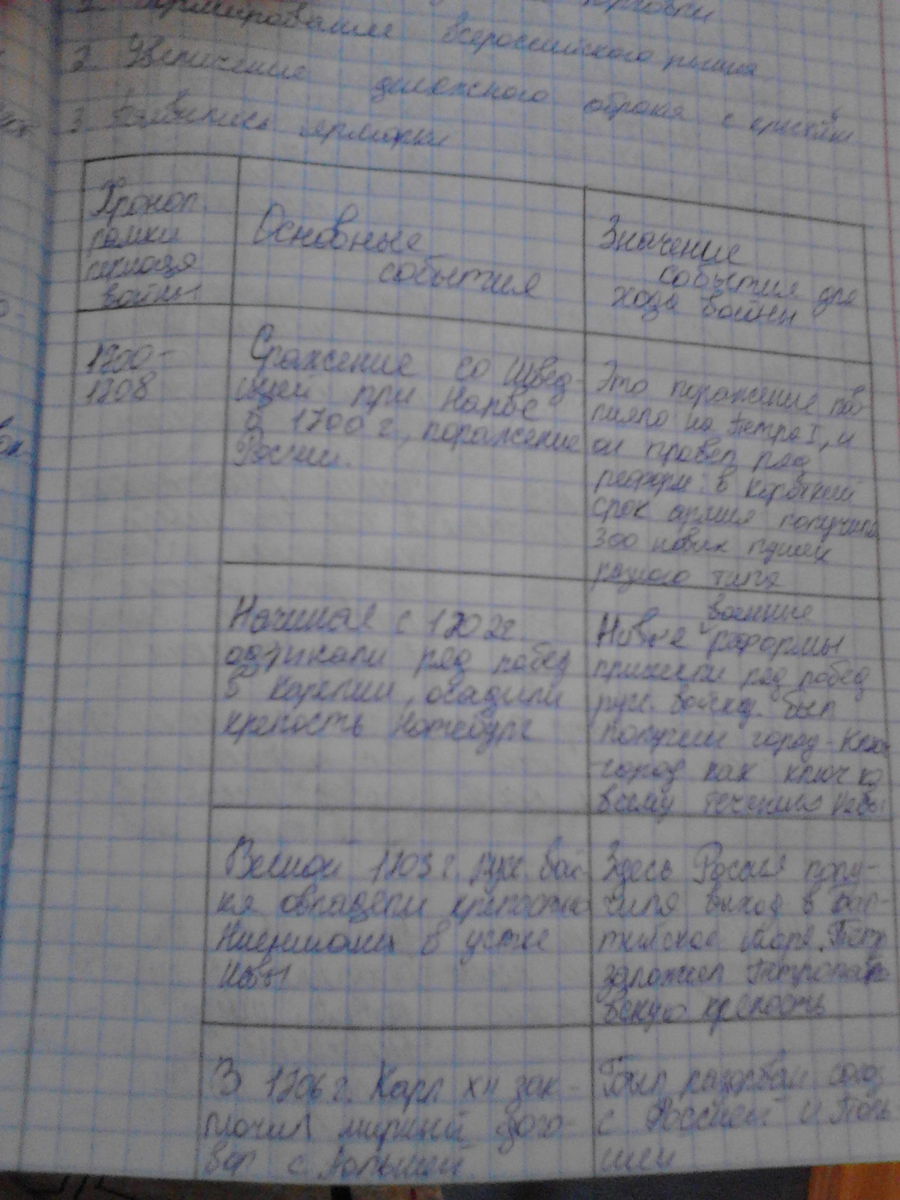 формирование всероссийского рынка
2. Увеличение денежного оброка с крестьян
3. Появились ярмарки
Хронол.
рамки
периода
войны
Основные
события
Значение
события для
хода войны
1700-
1708
Сражение со Швед-
цией при Нарве
в 1700 г., поражение
России.
Это поражение пов-
лияло на Петра I, и
он провел ряд
реформ: в короткий
срок армия получила
300 новых пушек
разного типа
Начиная с 1702г
одержали ряд побед
в Карелии, осадили
крепость Нотебург
Новые военные реформы
принесли ряд побед
русс. войску. Был
получен город-Ключ
город как ключ ко
всему течению Невы
Весной 1703 г. рус. вой-
ка овладели крепостью
Ниеншанц в устье
Невы
Здесь Россия полу-
чила выход в Бал-
тийское море. Петр
заложил Петропавло
вскую крепость
В 1706 г. Карл XII зак-
лючил мирный дого-
вор с Польшей
Был разорван союз
с Россией и Поль
шей